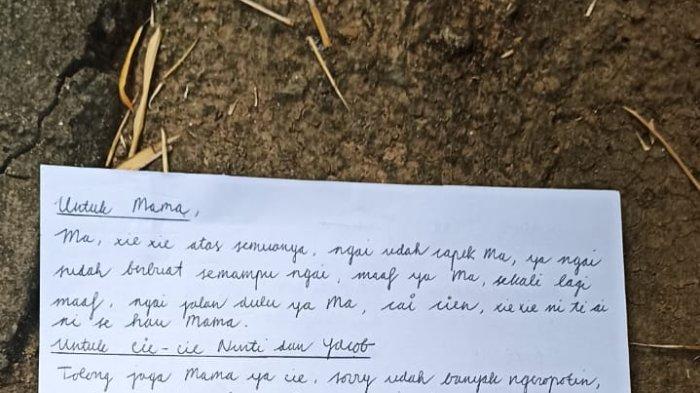 Untuk Mama,
Ma, xie xie atas semuanya, ngai udah capek Ma, ya ngai
sudah berbuat semampu ngai, maaf ya Ma, sekali lagi
maaf, ngai jalan dulu ya Ma, cai cien, xie xie ni ti ai
ni se hau Mama.
Untuk cie-cie Ninti dan Yacob
Tolong jaga Mama ya cie, sorry udah banyak ngerepotin,